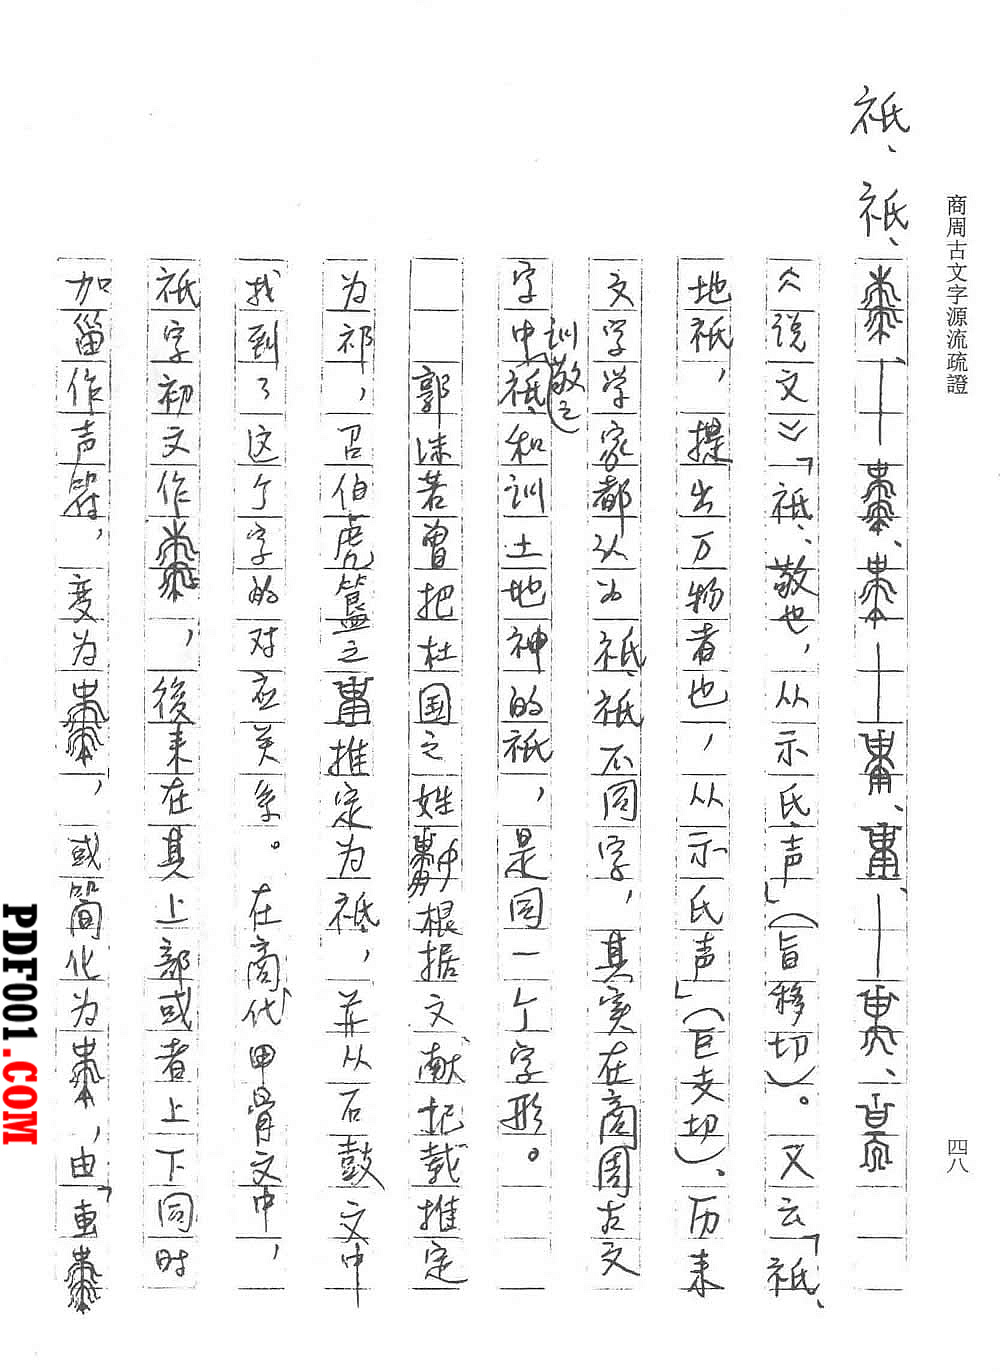 商周古文字源流疏證
四八
祇、祗、
《说文》「祗、敬也，从示氐声」（旨移切）。又云「祇、
地祇，提出万物者也，从示氏声」（巨支切）、历来
文字学家都认为祇、祗不同字，其实在商周古文
字中祗（训敬之）和训土地神的祇，是同一个字形。
郭沫若曾把杜国之姓根据文献记载推定
为祁，召伯虎簋之推定为祗，并从石鼓文中
找到了这个字的对应关系。在商代甲骨文中，
祇字初文作，後来在其上部或者上下同时
加甾作声符，变为，或简化为，由「
PDF001.COM